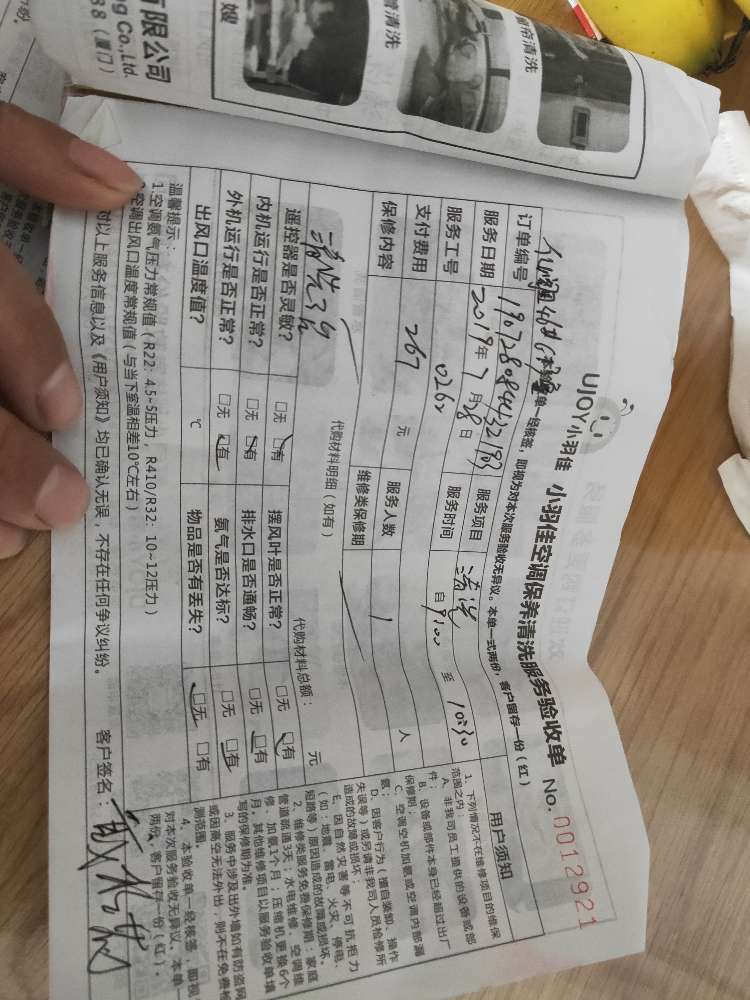 有限公司
ng Co.,Ltd.
88（厦门）
嫂
管清洗
窗帘清洗
UJOY小羽佳 小羽佳空调保养清洗服务验收单 No.0012921
本验收单一经核签，即视为对本次服务验收无异议。本单一式两份，客户留存一份（红）
订单编号
服务日期 2019年7月28日 服务项目 清洗
服务工号 0262 服务时间 自9:00 至 10:30
支付费用 267 元 服务人数 1 人
保修内容 维修类保修期
代购材料明细（如有） 代购材料总额： 元
清洗3台
遥控器是否灵敏？ □无 □有 摆风叶是否正常？ □无 □有
内机运行是否正常？ □无 □有 排水口是否通畅？ □无 □有
外机运行是否正常？ □无 □有 氨气是否达标？ □无 □有
出风口温度值？ ℃ 物品是否有丢失？ □无 □有
温馨提示：
1.空调氨气压力常规值（R22：4.5~5压力，R410/R32：10~12压力）
2.空调出风口温度常规值（与当下室温相差10℃左右）
对以上服务信息以及《用户须知》均已确认无误，不存在任何争议纠纷。 客户签名：
用户须知
1、下列情况不在维修项目的维保
范围之内：
A、非我司员工提供的设备或部
件；
B、设备或部件本身已经超过出厂
保修期；
C、空调空机加氨或空调内部漏
氨；
D、因客户行为（擅自装卸、操作
失误等）或另请非我司人员检修所
造成的故障或损坏；
E、因自然灾害等不可抗拒力
（如：地震、雷电、火灾、停电、
短路等）原因造成的故障或损坏。
2、维修类服务免费保修期：家庭
管道疏通3天；水电维修、空调维
修、加氨1个月；压缩机更换6个
月。其他维修项目以服务验收单填
写的保修期为准。
3、服务中涉及出外墙如有防盗网
或因高空无法外出，则不在免费检
测范围。
4、本验收单一经核签，即视
对本次服务验收无异议。本单一
两份，客户留存一份（红）。